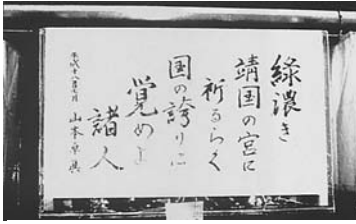 緑濃き
靖国の宮に
祈るらく
国の誇りに
覚めよ
諸人
平成十八年七月
山本卓眞